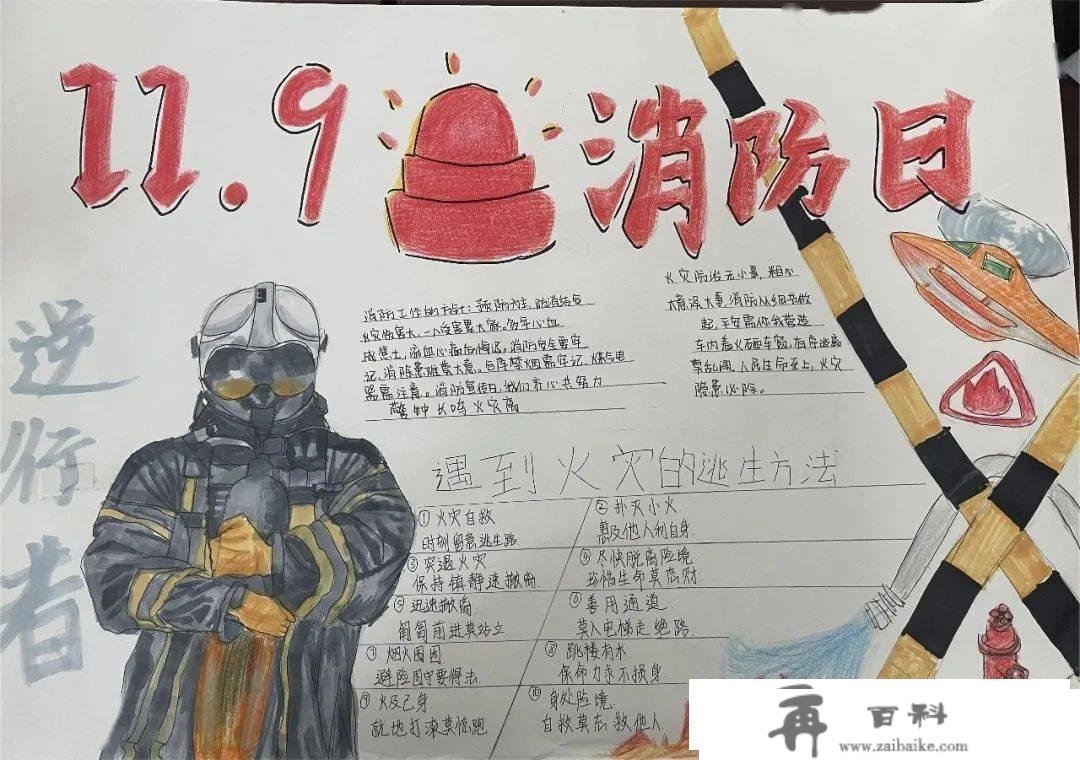 11.9 消防日
逆行者
消防工作的方针：预防为主，防消结合
火灾伤害大，一人受害累大家。多年心血
成焦土，流血心痛后悔迟。消防安全要牢
记，消除患难莫大意。仓库禁烟需牢记，煤气电
器需注意。消防宣传日，我们齐心共努力
警钟长鸣火灾离
火灾防治无小事，粗心
大意误大事。消防从细节做
起，平安需你我营造
车内着火砸车窗，有序逃离
莫乱闯。人民生命至上，火灾
隐患必除。
遇到火灾的逃生方法
① 火灾自救
时刻留意逃生路
② 扑灭小火
惠及他人利自身
③ 突遇火灾
保持镇静速撤离
④ 尽快脱离险境
珍惜生命莫恋财
⑤ 迅速撤离
匍匐前进莫站立
⑥ 善用通道
莫入电梯走绝路
⑦ 烟火围困
避险固守要得法
⑧ 跳楼有术
保命力求不损身
⑨ 火及己身
就地打滚莫惊跑
⑩ 身处险境
自救莫忘救他人
再 百科
www.zaibaike.com